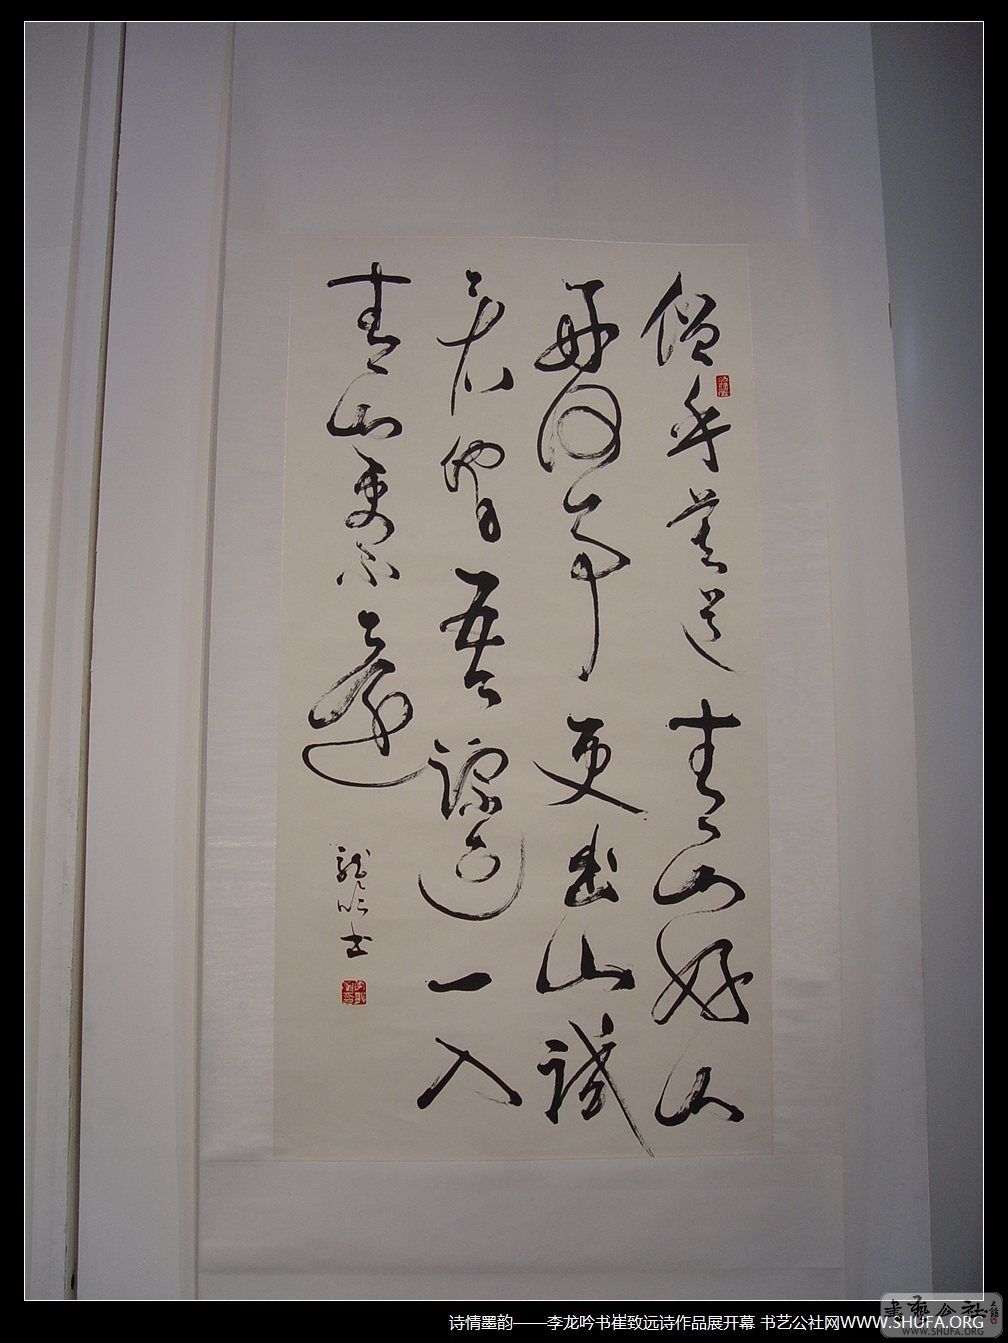 僧乎莫道青山好山
好何事更出山試
看他日吾踪迹一入
青山更不還
龍吟書
诗情墨韵——李龙吟书崔致远诗作品展开幕 书艺公社网WWW.SHUFA.ORG
書藝公社
WWW.SHUFA.ORG